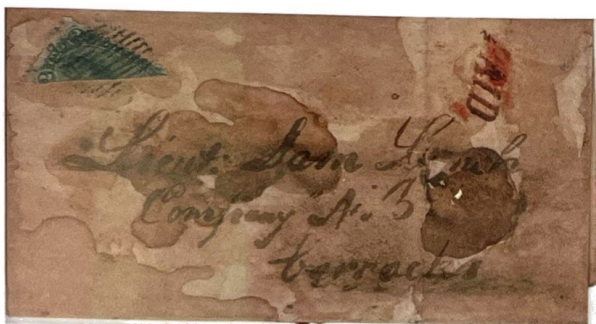 PAID
Lieut. Sam Lynch
Company No. 3
barracks